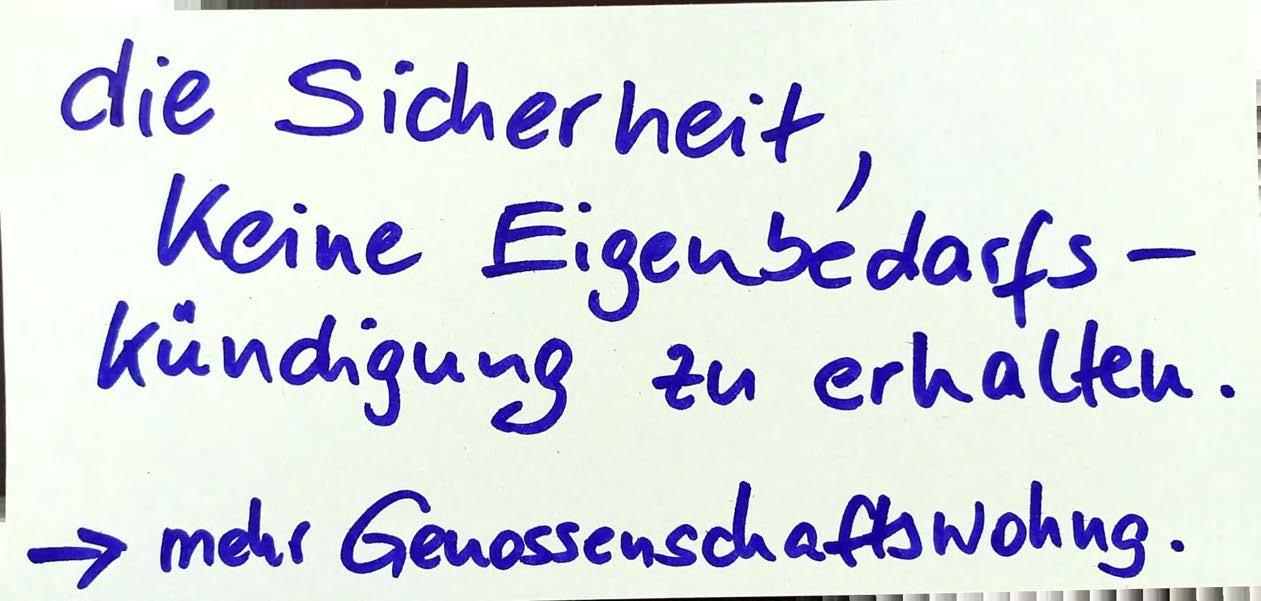 die Sicherheit,
Keine Eigenbedarfs-
kündigung zu erhalten.
→ mehr Genossenschaftswohng.